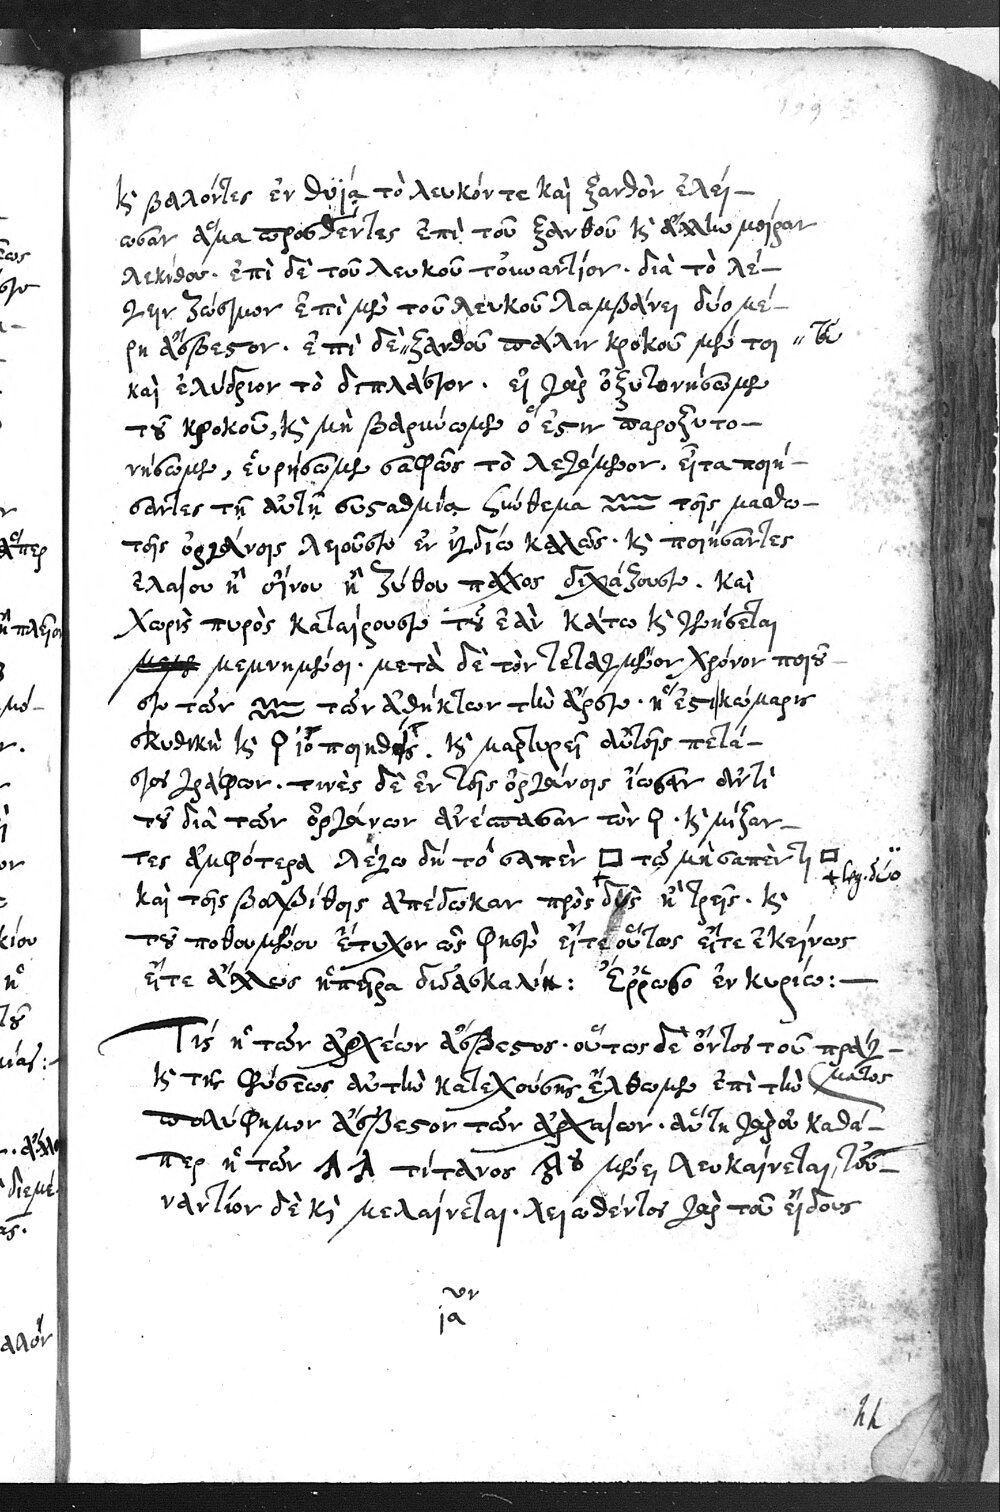 κ βαλόντες ἐν θυΐα τὸ λευκόν τε καὶ ξανθὸν ἐλεί-
ωσαν ἅμα προσθέντες ἐπὶ τοῦ ξανθοῦ κ ἄλλην μοίραν
λεκίθου. ἐπὶ δὲ τοῦ λευκοῦ τοὐναντίον. διὰ τὸ λέ-
γειν ζώσιμον ἐπὶ μὲν τοῦ λευκοῦ λαμβάνει δύο μέ-
ρη ἄσβεστον. ἐπὶ δὲ " ξανθοῦ πάλιν κρόκου μέν τοι " τοῦ
καὶ ἐλύδριον τὸ διπλάσιον. εἰ γὰρ ὀξυτονήσωμεν
τοῦ κρόκου, κ μὴ βαρυύωμεν ὅ ἐστιν παροξυτο-
νήσωμεν, εὑρήσωμεν σαφῶς τὸ λεγόμενον. εἶτα ποιή-
σαντες τῇ αὐτῇ συσταθμία σύνθεμα
τοῖς ὀργάνοις λειοῦσιν ἐν ἰγδίω καλῶς. κ ποιήσαντες
ἐλαίου ἢ οἴνου ἢ ζύθου πάχος διχάζουσιν. καὶ
χωρὶς πυρὸς καταίρουσιν τοῦ ἐὰν κάτω κ
μεμνημένοι. μετὰ δὲ τὸν τεταγμένον χρόνον ποιοῦ-
σιν τῶν τῶν ἀθήκτων τὴν ἄρσιν. ἥ ἐστι κώμαρις
σκυθικὴ κ ἰὸ ποιηθεὶς. κ μαρτυρεῖ αὐτοῖς πετά-
σιος γράφων. τινὲς δὲ ἐν τοῖς ὀργάνοις ἴωσαν ἀντὶ
τοῦ διὰ τῶν ὀργάνων ἀνέσπασαν τὴν . κ μίξαν-
τες ἀμφότερα λέγω δὴ τὸ σαπὲν □ τῷ μὴ σαπέντι □
καὶ τοῖς βαμβίθοις ἀπέδωκαν πρὸς δὶς ἢ τρεῖς. κ + leg. δύο
τοῦ ποθουμένου ἔτυχον ὥς φησιν εἴτε οὕτως εἴτε ἐκείνως
εἴτε ἄλλως ἡ πεῖρα διδασκαλίη: Ἔρρωσο ἐν κυρίω: —
Τίς ἡ τῶν ἀρχέων ἄσβεστος. οὕτως δὲ ὄντος τοῦ πράγ-
κ τῆς φύσεως αὐτὴν κατεχούσης ἔλθωμεν ἐπὶ τὴν ματος
πολύφημον ἄσβεστον τῶν ἀρχαίων. αὕτη γὰρ οὐ καθά-
περ ἡ τῶν τίτανος μένει λευκαίνεται, τοὐ-
ναντίον δὲ κ μελαίνεται. λειωθέντος γὰρ τοῦ εἴδους
ια